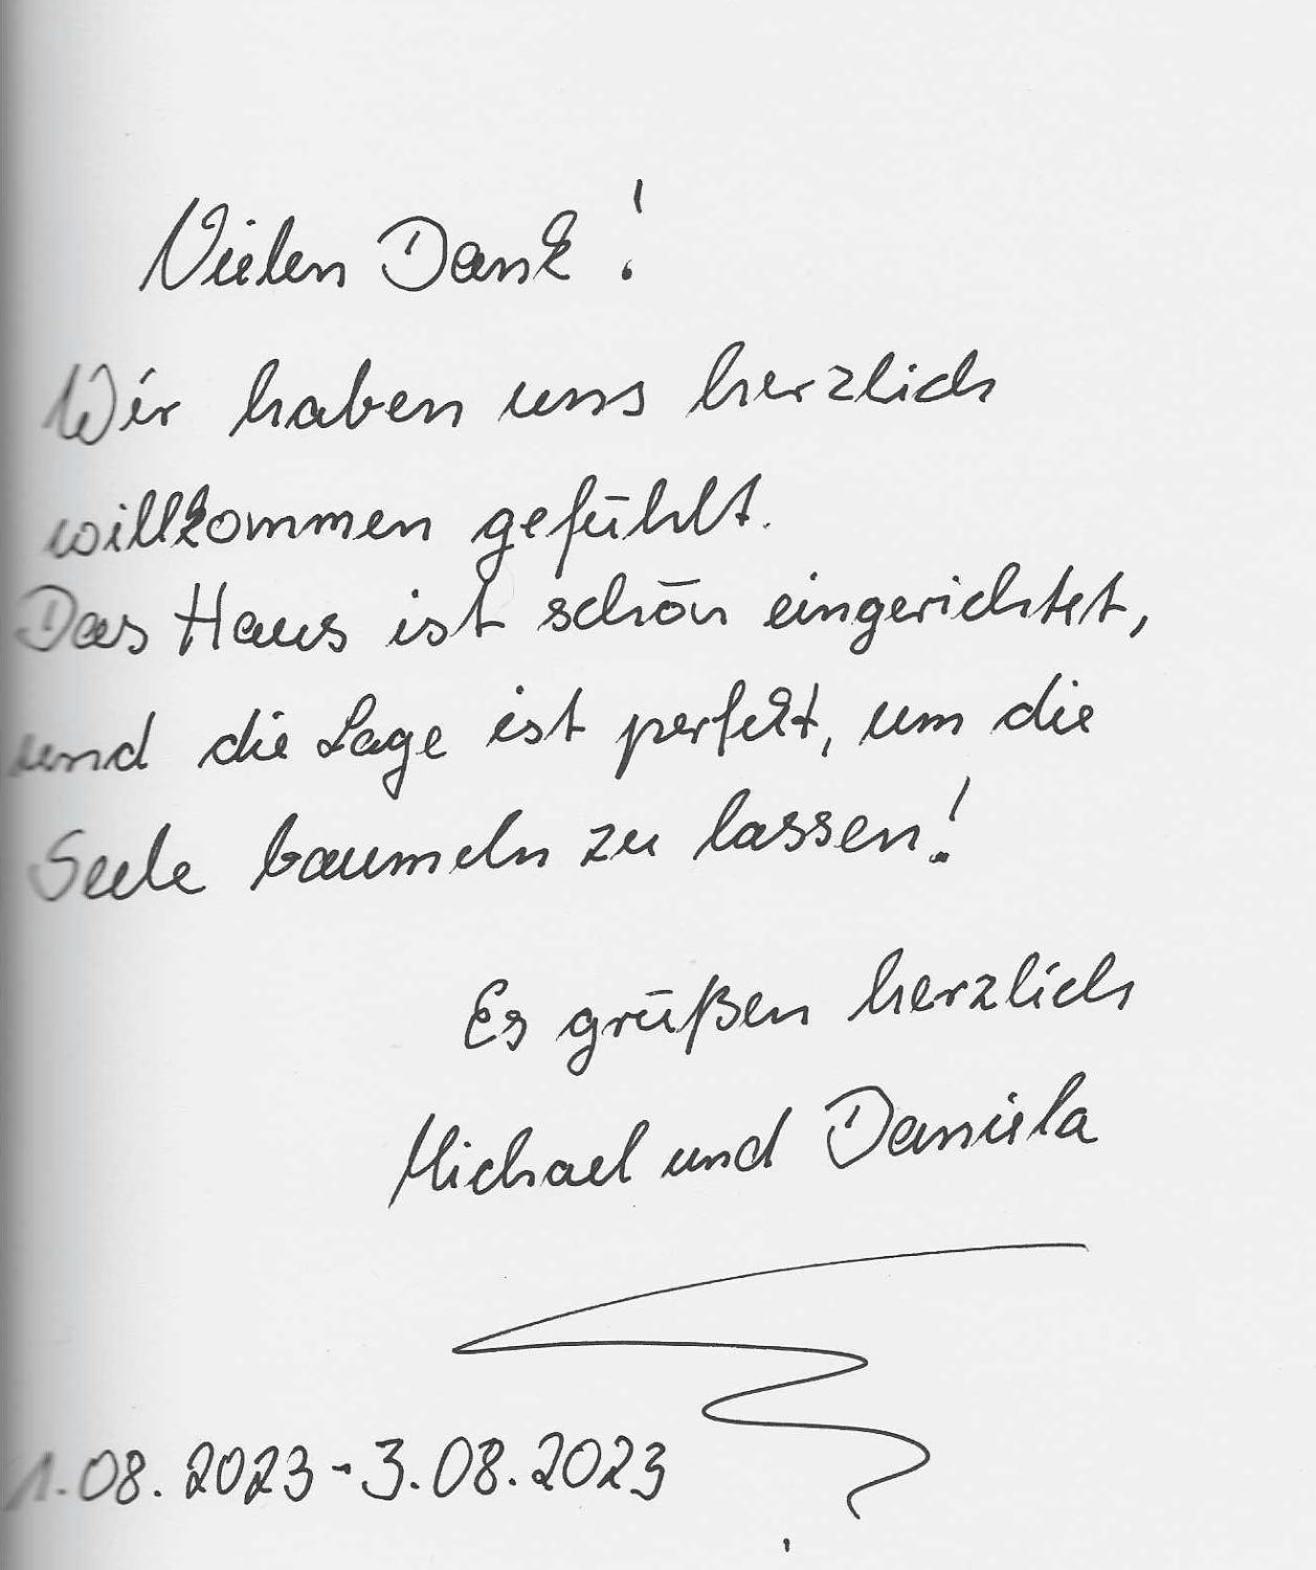 Vielen Dank!
Wir haben uns herzlich
willkommen gefühlt.
Das Haus ist schön eingerichtet,
und die Lage ist perfekt, um die
Seele baumeln zu lassen!
Es grüßen herzlich
Michael und Daniela
1.08.2023-3.08.2023